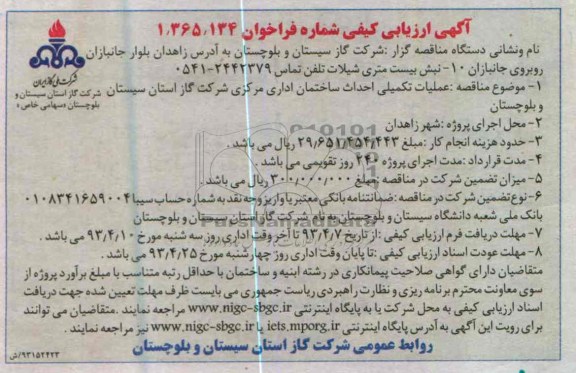 آگهی ارزیابی کیفی شماره فراخوان ۱،۳۶۵،۱۳۴
شرکت ملی گاز ایران
شرکت گاز استان سیستان و بلوچستان «سهامی خاص»
نام ونشانی دستگاه مناقصه گزار :شرکت گاز سیستان و بلوچستان به آدرس زاهدان بلوار جانبازان
روبروی جانبازان ۱۰- نبش بیست متری شیلات تلفن تماس ۲۴۴۲۳۷۹-۰۵۴۱
۱- موضوع مناقصه :عملیات تکمیلی احداث ساختمان اداری مرکزی شرکت گاز استان سیستان
و بلوچستان
۲- محل اجرای پروژه :شهر زاهدان
۳- حدود هزینه انجام کار :مبلغ ۲۹/۶۵۱/۴۵۴/۴۴۳ ریال می باشد .
۴- مدت قرارداد :مدت اجرای پروژه ۲۴۰ روز تقویمی می باشد .
۵- میزان تضمین شرکت در مناقصه :مبلغ ۳۰۰/۰۰۰/۰۰۰ ریال می باشد .
۶- نوع تضمین شرکت در مناقصه :ضمانتنامه بانکی معتبر یا واریز وجه نقد به شماره حساب سیبا ۰۱۰۸۳۴۱۶۵۹۰۰۴
بانک ملی شعبه دانشگاه سیستان و بلوچستان به نام شرکت گاز استان سیستان و بلوچستان
۷- مهلت دریافت فرم ارزیابی کیفی :از تاریخ ۹۳/۴/۷ تا آخر وقت اداری روز سه شنبه مورخ ۹۳/۴/۱۰ می باشد .
۸- مهلت عودت اسناد ارزیابی کیفی :تا پایان وقت اداری روز چهارشنبه مورخ ۹۳/۴/۲۵ می باشد .
متقاضیان دارای گواهی صلاحیت پیمانکاری در رشته ابنیه و ساختمان با حداقل رتبه متناسب با مبلغ برآورد پروژه از
سوی معاونت محترم برنامه ریزی و نظارت راهبردی ریاست جمهوری می بایست ظرف مهلت تعیین شده جهت دریافت
اسناد ارزیابی کیفی به محل شرکت یا به پایگاه اینترنتی www.nigc-sbgc.ir مراجعه نمایند .متقاضیان می توانند
برای رویت این آگهی به آدرس پایگاه اینترنتی iets.mporg.ir یا www.nigc-sbgc.ir نیز مراجعه نمایند .
روابط عمومی شرکت گاز استان سیستان و بلوچستان
۹۳۱۵۲۴۲۳/ش